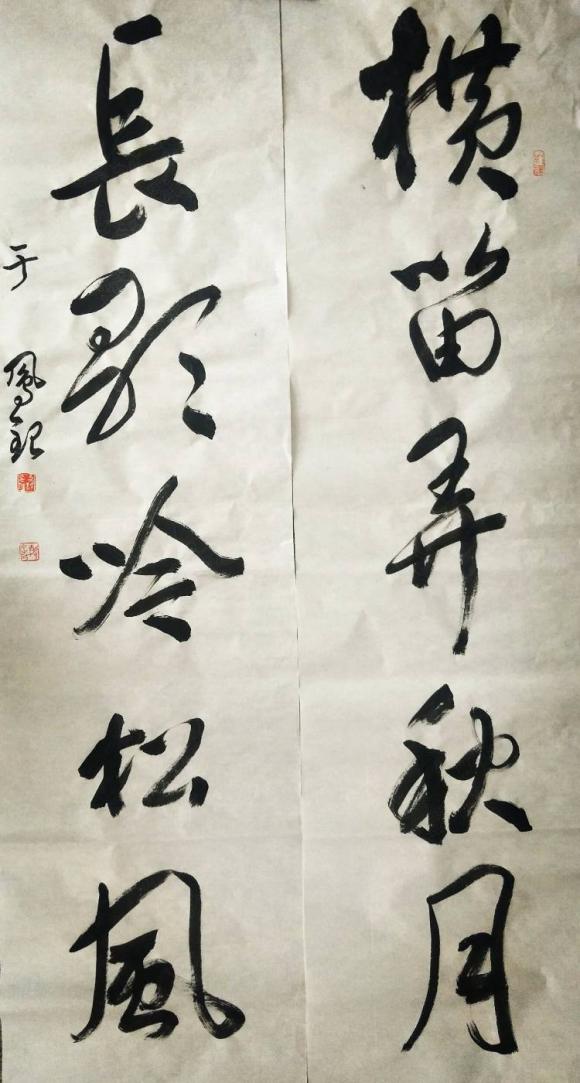 橫笛弄秋月
長歌吟松風
于